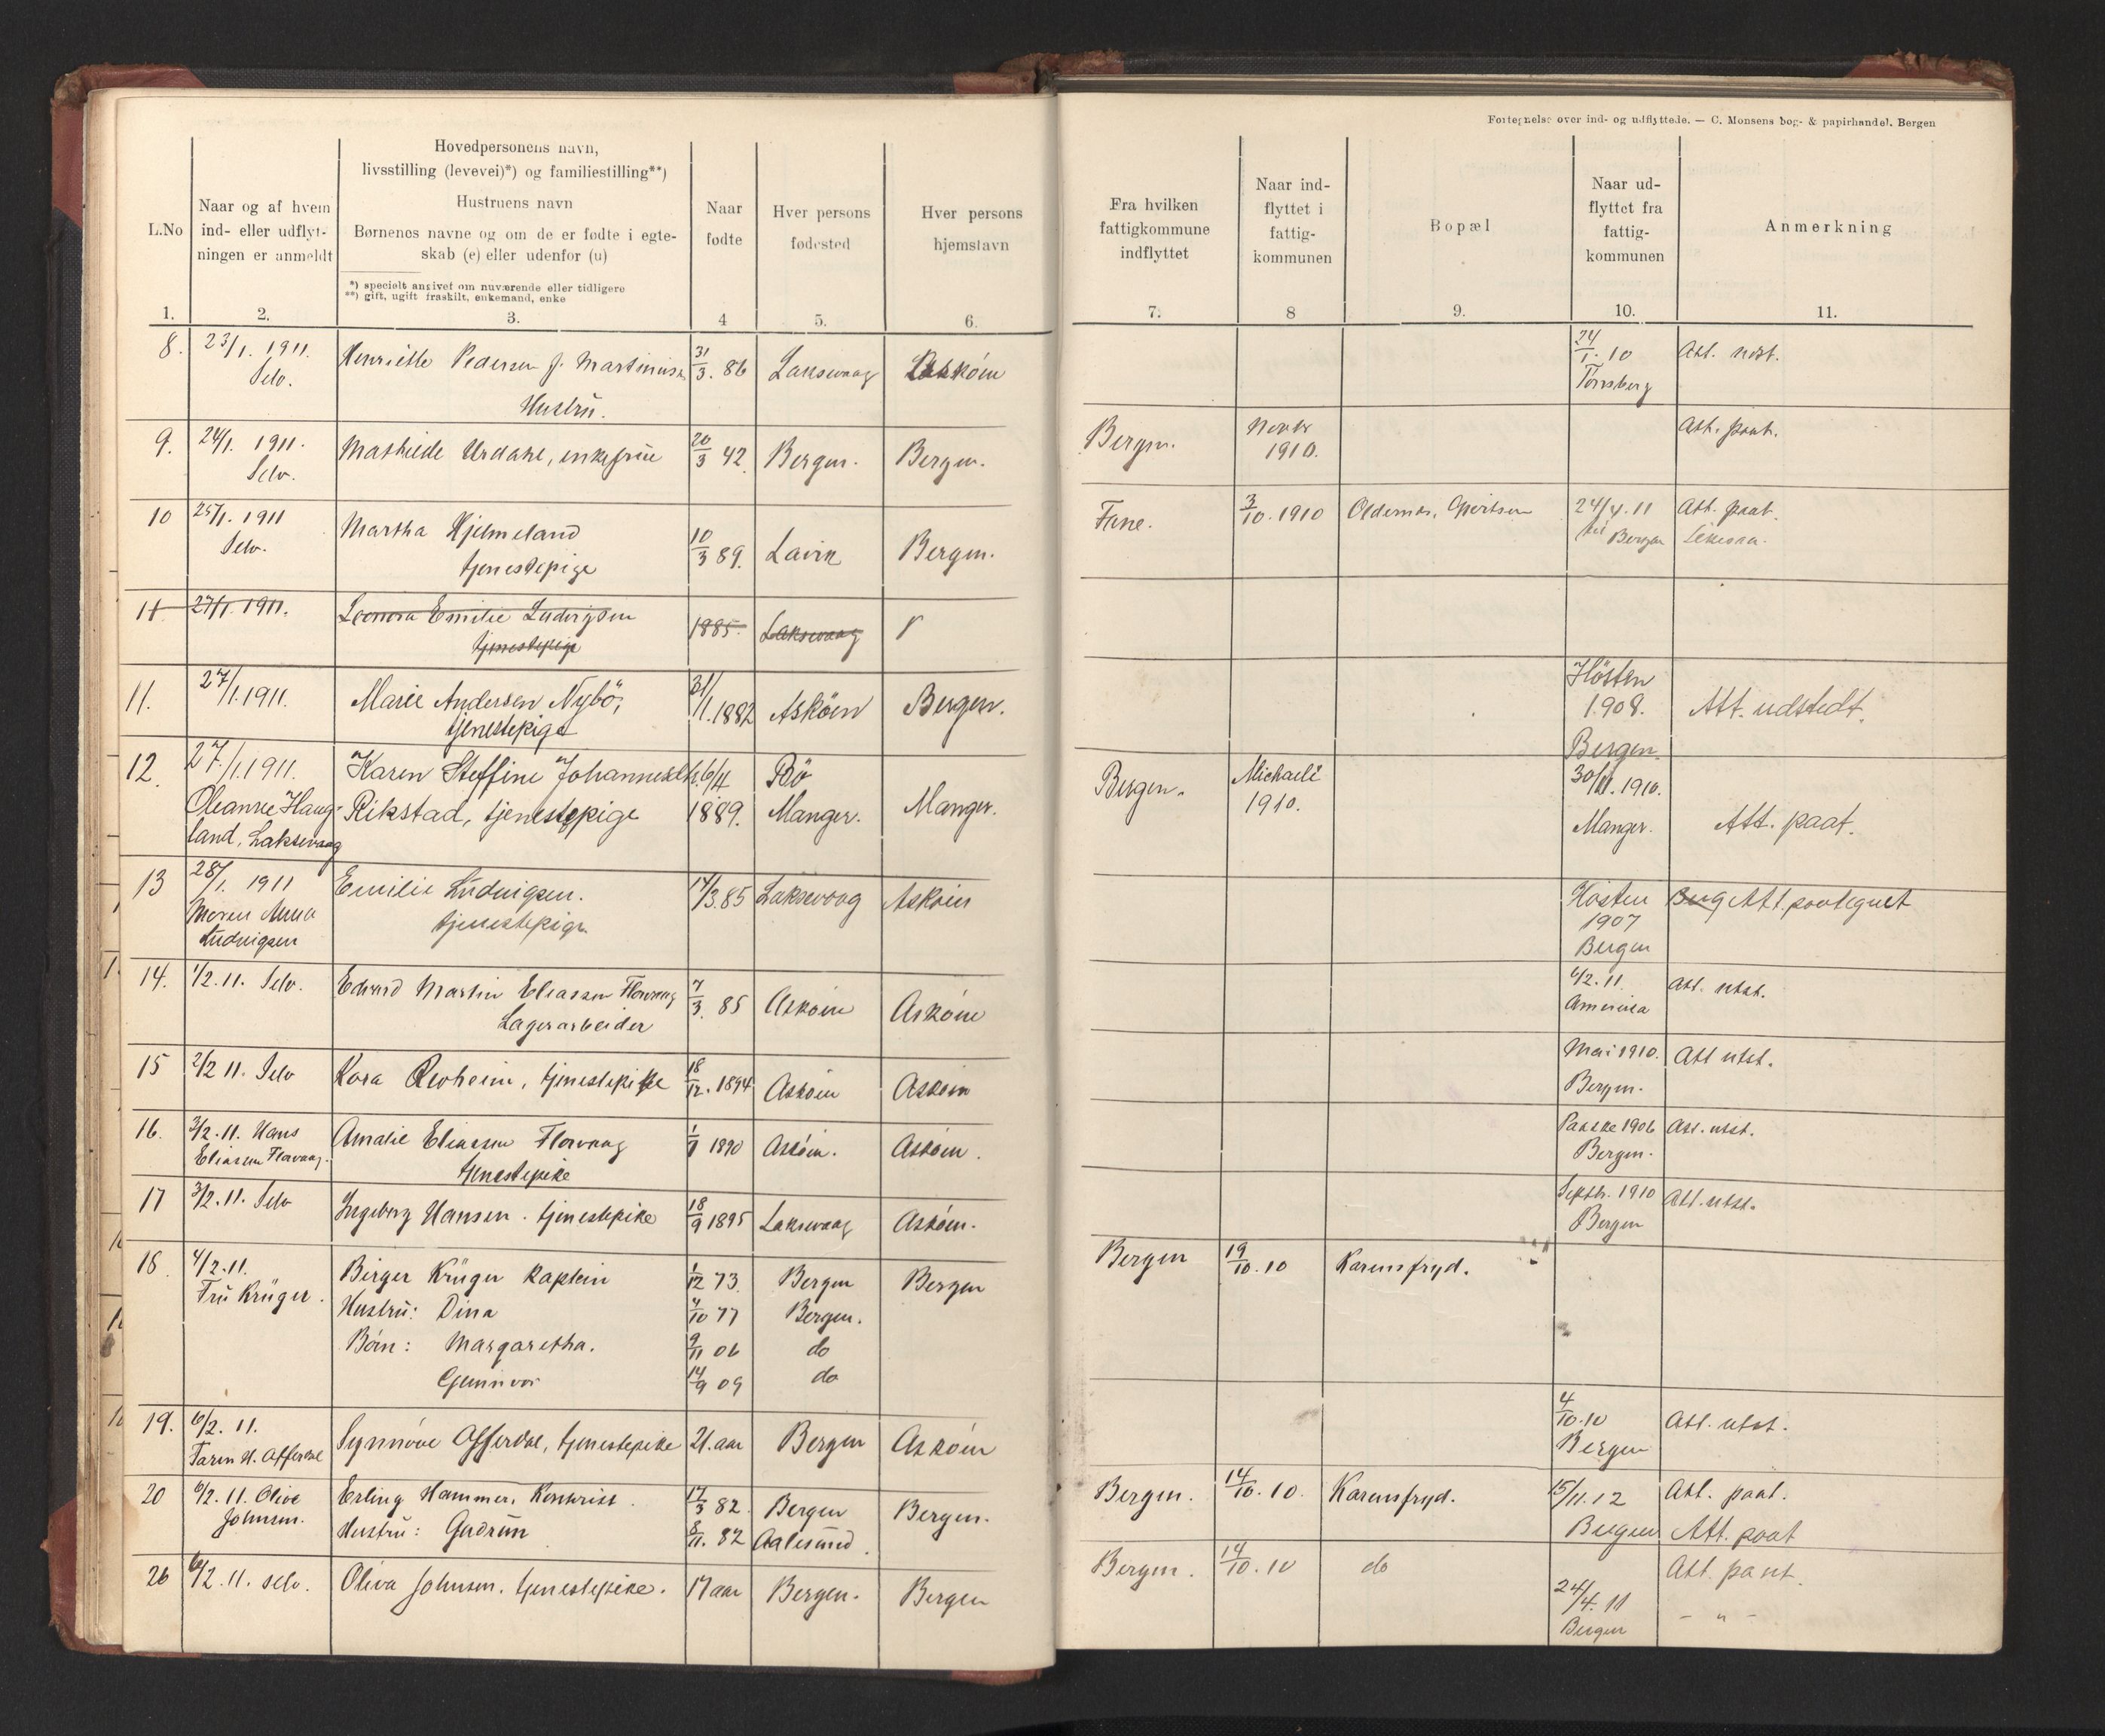 Fortegnelse over ind- og udflyttede. — C. Monsens bog- & papirhandel. Bergen
L.No
Naar og af hvem
ind- eller udflyt-
ningen er anmeldt
Hovedpersonens navn,
livsstilling (levevei)*) og familiestilling**)
Hustruens navn
Børnenes navne og om de er fødte i egte-
skab (e) eller udenfor (u)
*) specielt angivet om nuværende eller tidligere
**) gift, ugift fraskilt, enkemand, enke
Naar
fødte
Hver persons
fødested
Hver persons
hjemstavn
Fra hvilken
fattigkommune
indflyttet
Naar ind-
flyttet i
fattig-
kommunen
Bopæl
Naar ud-
flyttet fra
fattig-
kommunen
Anmerkning
1. 2. 3. 4 5. 6. 7. 8 9. 10. 11.
8. 23/1. 1911. Henriette Pedersen f. Martinusen 31/3. 86 Laksevaag Askøen 24/1. 10 Att.
Selv. Hustru. Tønsberg
9. 24/1. 1911. Mathilde Urdahl, enkefrue 20/3 42. Bergen. Bergen. Bergen. Novbr Att. paat.
Selv. 1910.
10 25/1. 1911 Martha Hjelmeland 10/3 89. Lavik Bergen. Fane. 3/10. 1910 24/4. 11 Att. paat.
Selv. tjenestepige til Bergen
11 27/1. 1911. Leonora Emilie Ludvigsen 1885. Laksevaag
tjenestepige
11. 27/1. 1911. Marie Andersen Nybö, 31/1. 1882 Asköen Bergen. Hösten
tjenestepige 1908. Att. udstedt.
Bergen.
12. 27/1. 1911. Karen Steffine Johannesdtr. 6/4 Bö Bergen. Michaeli 30/11. 1910.
Oleanne Haug- Rikstad, tjenestepige 1889. Manger. Manger. 1910. Manger. Att. paat.
land, Laksevaag
13 28/1. 1911 Emilie Ludvigsen. 17/3. 85 Laksevaag Askøen Høsten Att. paategnet
Moren Anna tjenestepige 1907
Ludvigsen Bergen
14. 1/2. 11. Selv. Edvard Martin Eliassen Florvaag 7/3. 85 Askøen Askøen 6/2. 11. Att. utst.
Lagerarbeider Amerika
15 2/2 11. Selv Kora Revheim, tjenestepike 18/12. 1894 Askøen Askøen Mai 1910. Att utst.
Bergen.
16. 3/2. 11. Hans Amalie Eliassen Florvaag 1890 Askøen. Askøen. Paaske 1906 Att. utst.
Eliassen Florvaag. tjenestepike Bergen.
17 3/2. 11. Selv Ingeborg Hansen. tjenestepike 18/9 1895 Laksevaag Askøen. Septbr. 1910 Att. utst.
Bergen
18. 4/2. 11. Birger Krüger kaptein 1/12 73. Bergen Bergen Bergen 19/10. 10 Karensfryd.
Fru Krüger. Hustru: Dina 4/10 77 Bergen.
Børn: Margaretha. 9/11 06 do
14/9 09 do
19. 6/2. 11. Synnøve Afferdal, tjenestepike 21. aar Bergen Askøen 4/10. 10 Att. utst.
Faren H. Afferdal Bergen
20 6/2. 11. Olive Erling Hammer, Kontorist. 17/3 82. Bergen Bergen. Bergen. 14/10. 10. Karensfryd. 15/11. 12 Att. paat.
Johnsen. Hustru: Gudrun 8/11. 82 Aalesund. Bergen Att. paat
26 6/2. 11. selv. Oliva Johnsen. tjenestepike. 17 aar Bergen. Bergen Bergen. 14/10. 10 do Att. paat.
24/4. 11 - " -
Bergen